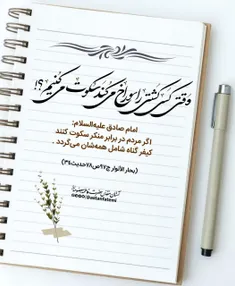 وقتی کسی کشتی را سوراخ می‌کند سکوت می‌کنیم؟!
امام صادق علیه‌السلام:
اگر مردم در برابر منکر سکوت کنند
کیفر گناه شامل همه‌شان می‌گردد .
(بحار الأنوار ج۹۷ص۷۸حدیث۳۴)